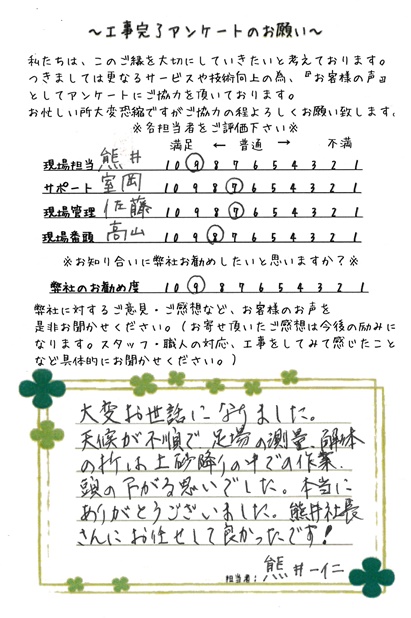 ～工事完了アンケートのお願い～
私たちは、このご縁を大切にしていきたいと考えております。
つきましては更なるサービスや技術向上の為、『お客様の声』
としてアンケートにご協力を頂いております。
お忙しい所大変恐縮ですがご協力の程よろしくお願い致します。
※各担当者をご評価下さい※
満足 ← 普通 → 不満
現場担当 熊井 10 9 8 7 6 5 4 3 2 1
サポート 室岡 10 9 8 7 6 5 4 3 2 1
現場管理 佐藤 10 9 8 7 6 5 4 3 2 1
現場番頭 高山 10 9 8 7 6 5 4 3 2 1
※お知り合いに弊社お勧めしたいと思いますか？※
弊社のお勧め度 10 9 8 7 6 5 4 3 2 1
弊社に対するご意見・ご感想など、お客様のお声を
是非お聞かせください。（お寄せ頂いたご感想は今後の励みに
なります。スタッフ・職人の対応、工事をしてみて感じたこと
など具体的にお聞かせください。）
大変お世話になりました。
天候が不順で足場の測量、解体
の折は土砂降りの中での作業、
頭の下がる思いでした。本当に
ありがとうございました。熊井社長
さんにお任せして良かったです！
担当者： 熊井一仁